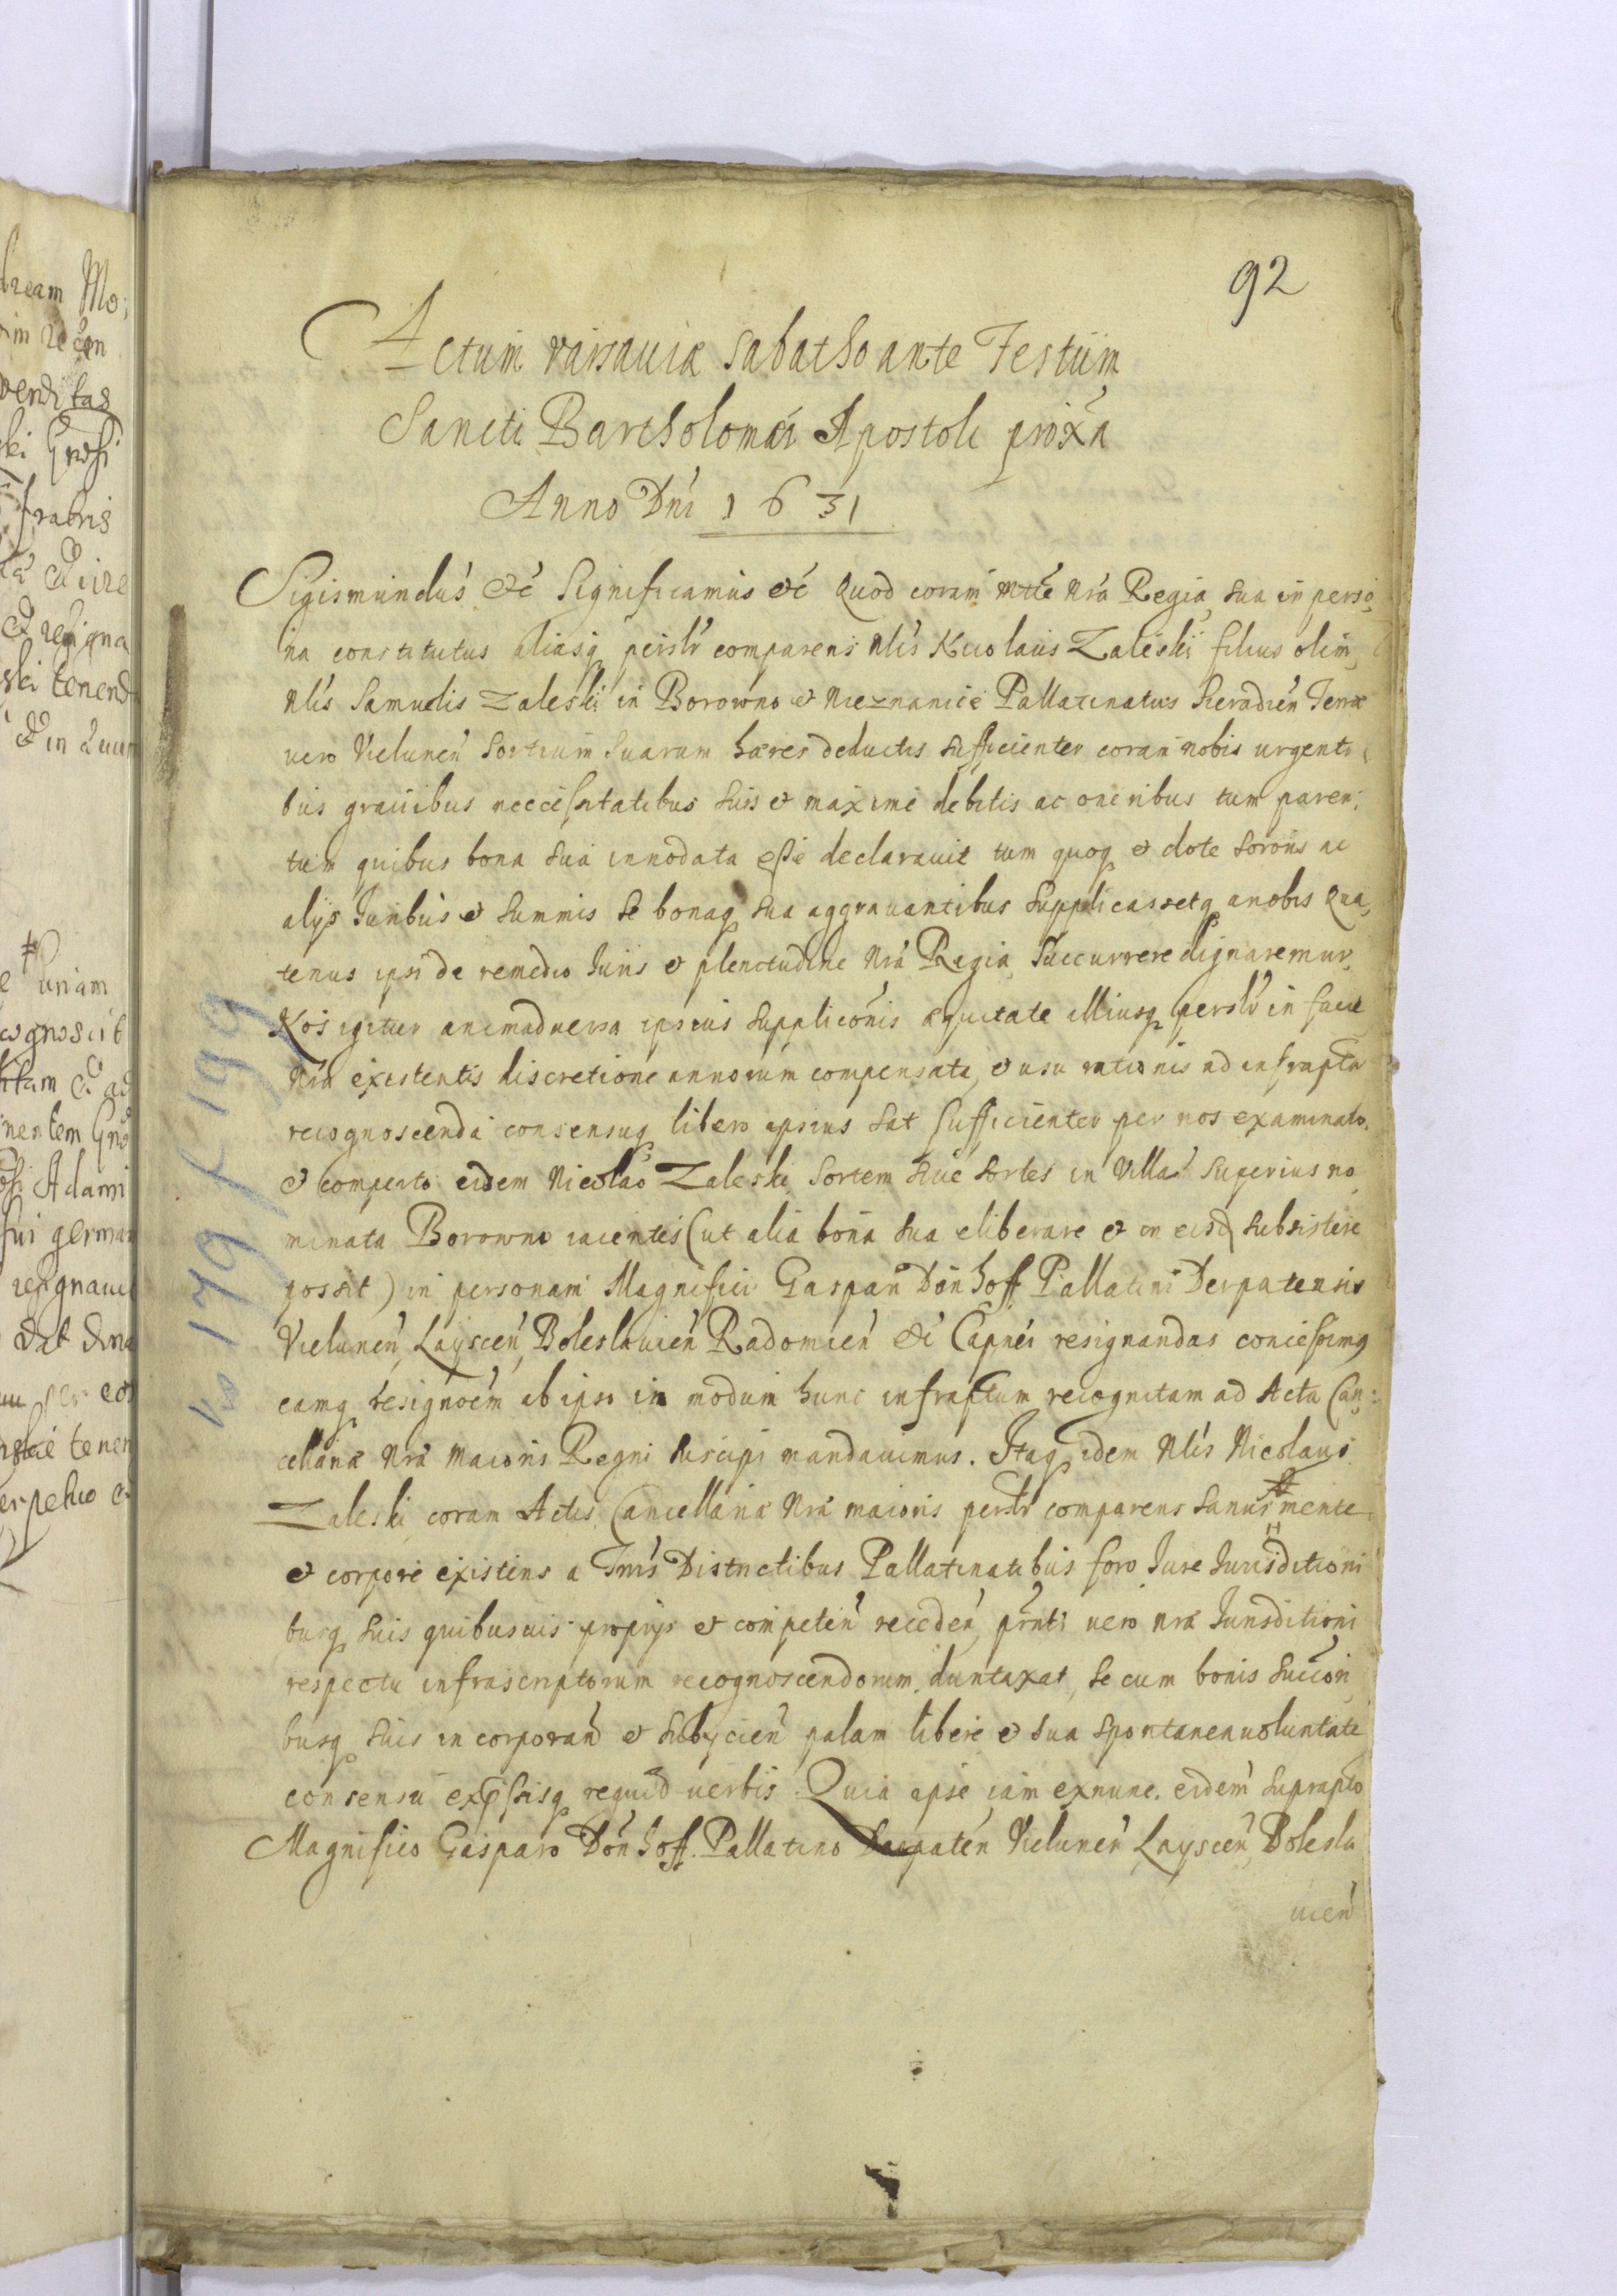 92
Actum varsauiæ Sabatho ante Festum
Sancti Bartholomæi Apostoli proxa
Anno Dni 1631
Sigismundus etc Significamus etc Quod coram Mtte nra Regia sua in perso
na constitutus aliasq persłr comparens Nlis Nicolaus Zaleski filius olim
Nlis Samuelis Zaleski in Borowno et Nieznanice Pallatinatus Sieradien Terræ
vero Vielunen Sortium suarum hæres deductis sufficienter coram nobis urgenti
bus grauibus neccessitatibus suis et maxime debitis ac oneribus tum paren
tum quibus bona sua innodata esse declarauit tum quoq et dote sororis ac
alijs Juribus et summis se bonaq sua aggrauantibus Supplicassetq a nobis Qua
tenus ipsi de remedio Juris et plenitudine nra Regia Succurrere dignaremur
Nos igitur animaduersa ipsius Supplicōnis æquitate illiusq persłr in facie
nra existentis discretione annorum compensata, et usu rationis ad infrapta
recognoscenda consensuq libero ipsius sat sufficienter per nos examinato
et comperto eidem Nicolao Zaleski Sortem siue Sortes in Villa superius no
minata Borowno iacentes (ut alia bona sua eliberare et in eisd subsistere
possit) in personam Magnifici Gaspari Dönhoff Pallatini Derpatensis
Vielunen, Layscen, Boleslauien Radomien etc Capnei resignandas concessimq
eamq resignoēm ab ipso in modum hunc infraptum recognitam ad Acta Can
cellariæ nræ Maioris Regni suscipi mandauimus. Itaq idem Nlis Nicolaus
Zaleski coram Actis Cancellariæ nræ maioris persłr comparens sanus mente
et corpore existens a Trris Districtibus Pallatinatibus foro Jure Jurisditioni
busq suis quibusuis proprijs et competen receden prnti vero nræ Jurisditioni
respectu infrascriptorum recognoscendorum duntaxat, se cum bonis succōri
busq suis incorporan et subijcien palam libere et sua spontanea voluntate
consensu expssisq recogud verbis Quia ipse iam ex nunc eidem suprapto
Magnifico Gasparo Dönhoff Pallatino Derpaten Vielunen Layscen, Bolesla
uien
Vs 179 f 199